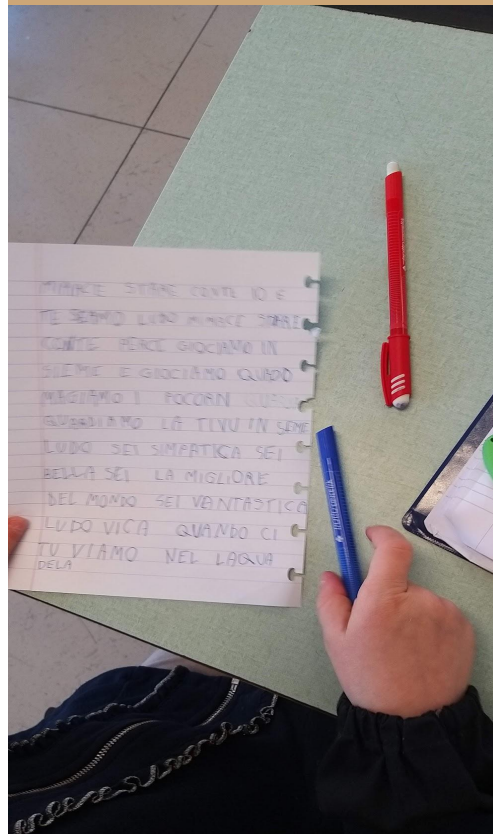 MIPIACE STARE CONTE IO E
TE SEAMO LUDO MIPIACE STARE
CONTE PERCE GIOCIAMO IN
SIEME E GIOCIAMO QUADO
MAGIAMO I POCORN
GUARDIAMO LA TIVU IN SEME
LUDO SEI SIMPATICA SEI
BELLA SEI LA MIGLIORE
DEL MONDO SEI VANTASTICA
LUDO VICA QUANDO CI
TU VIAMO NEL LAQUA
DELA